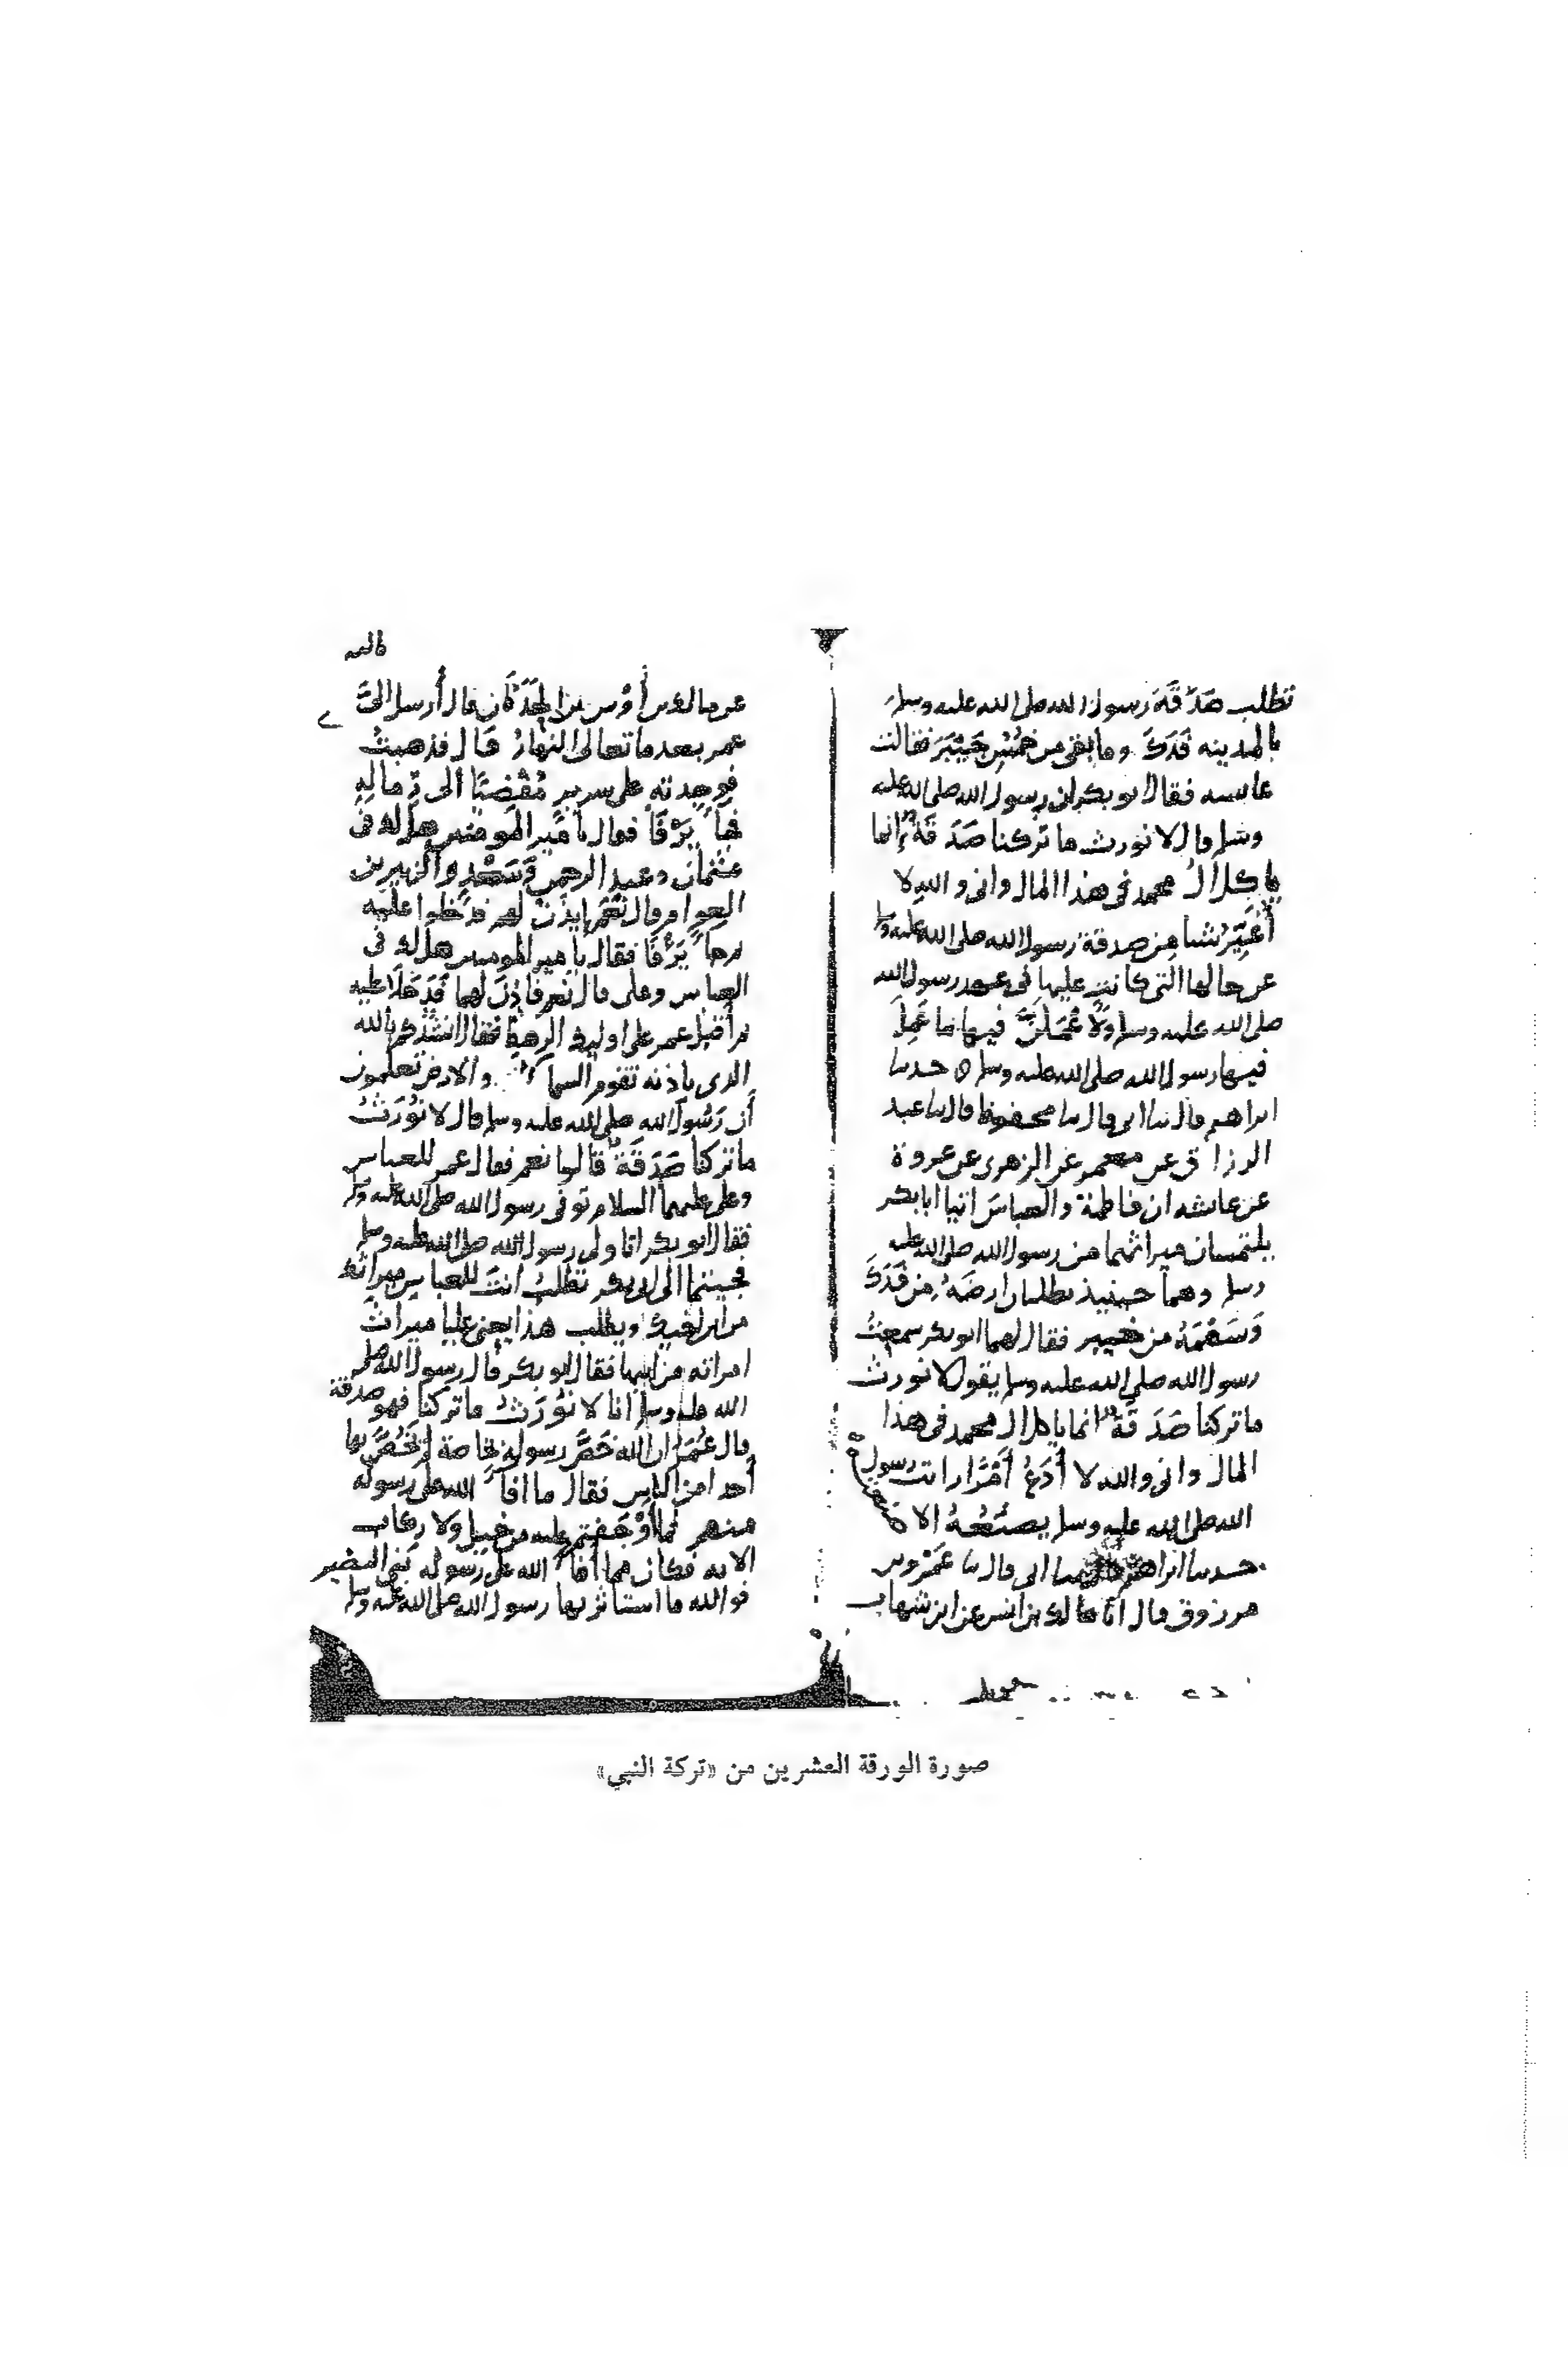 تطلب صَدَقَةَ رسول الله صلى الله عليه وسلم
بالمدينه فَدَكَ وما بقى من خُمُسِ خَيْبَرَ فقالت
عايشه فقال ابو بكر ان رسول الله صلى الله عليه
وسلم قال لا نورث ما تركنا صَدَقَةٌ إنما
ياكل ال محمد فى هذا المال وانى والله لا
أُغَيِّرُ شيا مِن صدقة رسول الله صلى الله عليه وسلم
عن حالها التى كانت عليها فى عهد رسول الله
صلى الله عليه وسلم وَلَأَعْمَلَنَّ فيها ما عَمِلَ
فيها رسول الله صلى الله عليه وسلم ه حدثنا
ابراهيم قال ثنا ابى قال ثنا محفوظ قال ثنا عبد
الرزاق عن معمر عن الزهرى عن عروة
عن عايشه ان فاطمة والعباس اتيا ابا بكر
يلتمسان ميراثهما من رسول الله صلى الله عليه
وسلم وهما حينيذ يطلبان ارضَهُ مِن فَدَكَ
وَسَهْمَهُ من خيبر فقال لهما ابو بكر سمعتُ
رسول الله صلى الله عليه وسلم يقول لا نورث
ما تركنا صَدَقَةٌ انما ياكل ال محمد فى هذا
المال وانى والله لا أَدَعُ أَمْرًا رايت رسول
الله صلى الله عليه وسلم يصنَعُهُ الا صنعته
حدثنا ابراهيم قال ثنا ابى قال ثنا عَمْرُو بن
مرزوق قال انا مالك بن انس عن ابن شهاب
عن مالك بن أَوْس بن الحَدَثَان قال أرسل الىَّ
عمر بعد ما تعالى النهارُ قال فذهبتُ
فوجدته على سريرٍ مُفْضِيًا الى رِمالِهِ
فجآءَ يَرْفَا فقال يا مير المومنين هل لك فى
عثمان وعبد الرحمن وَسَعْدٍ والزبير بن
العوام قال نَعَم إيذن لهم فدخلوا عليه
ثم جآءَ يَرْفَا فقال يا مير المومنين هل لك فى
العباس وعلى قال نعم فأذِنَ لهما فَدَخَلَا عليه
ثم أقبل عمر على اوليك الرهط فقال انشدكم بالله
الذى باذنه تقوم السمآء والارض تعلمون
أن رَسُولَ الله صلى الله عليه وسلم قال لا نُوْرَثُ
ما تركنا صَدَقَةٌ قالوا نعم فقال عمر للعباس
وعلى عليهما السلام توفى رسول الله صلى الله عليه وسلم
فقال ابو بكر انا ولى رسول الله صلى الله عليه وسلم
فجيتما الى ابى بكر تَطلُبُ أنتَ للعباس ميراثك
من ابن اخيك ويطلب هذا يعنى عليا ميراثَ
امراته من ابيها فقال ابو بكر قال رسول الله صلى
الله عليه وسلم انا لا نُوْرَثُ ما تركنا فهو صدقة
قال عُمَرُ ان الله خَصَّ رسوله بخاصة لم يَخُصَّ بها
أحدا من الناس فقال ما افآءَ الله على رسوله
منهم فما أَوْجَفتم عليه من خيل ولا ركاب
الايه فكان مما أَفآءَ الله على رسوله بنى النضير
فوالله ما استاثر بها رسول الله صلى الله عليه وسلم
صورة الورقة العشرين من «تركة النبي»